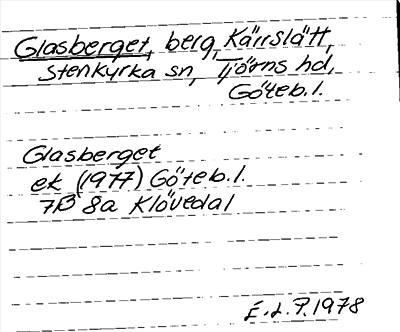 Glasberget, berg, Kärrslätt,
Stenkyrka sn, Tjörns hd,
Göteb. l.
Glasberget
ek (1977) Göteb. l.
7B 8a Klövedal
E. L. P. 1978